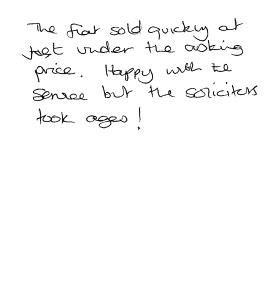 The flat sold quickly at
just under the asking
price. Happy with the
service but the solicitors
took ages!